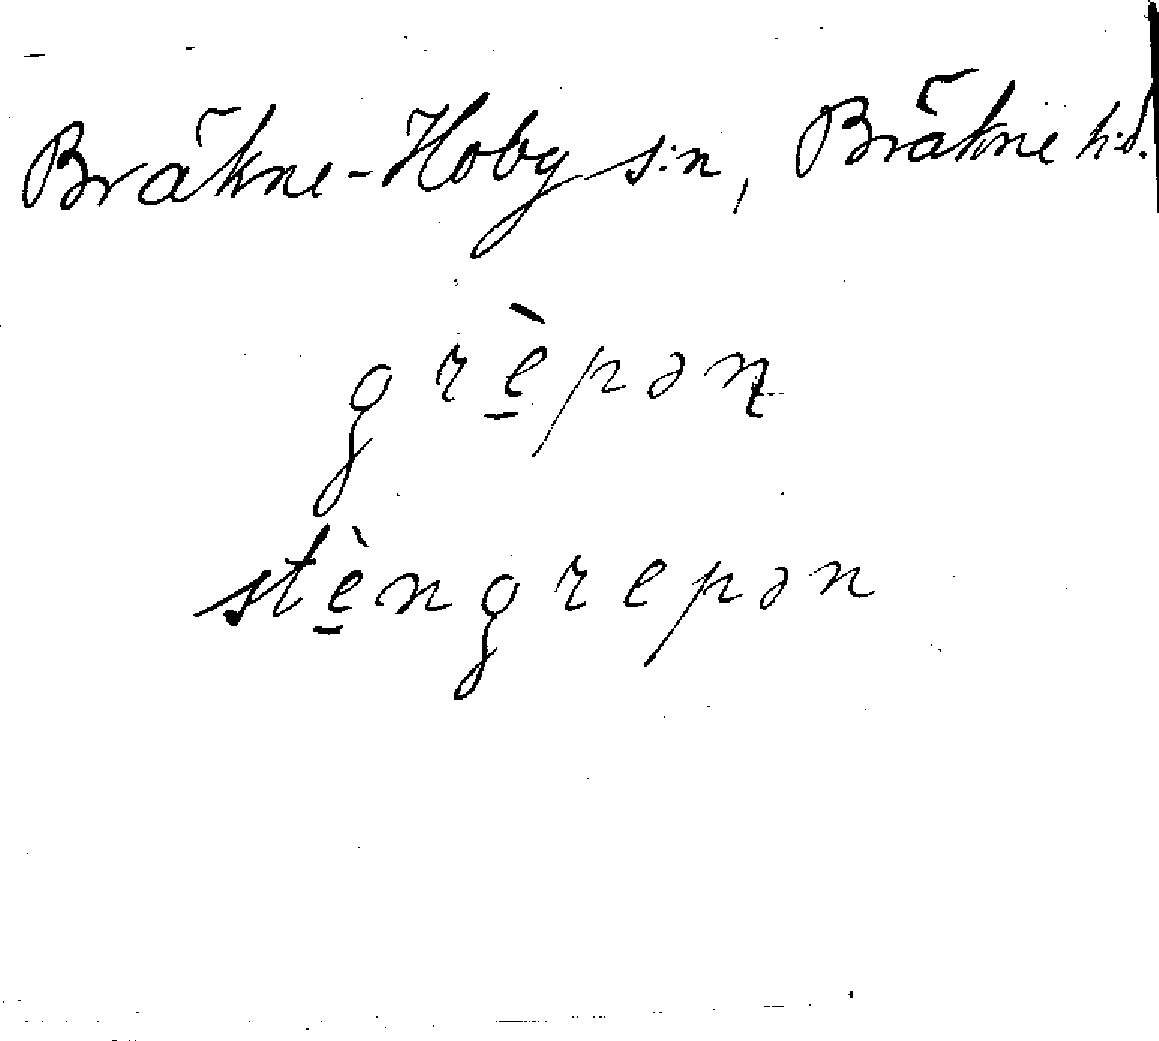 Bräkne-Hoby s:n, Bräkne h:d.
grè̱pən
stè̱ngrepən